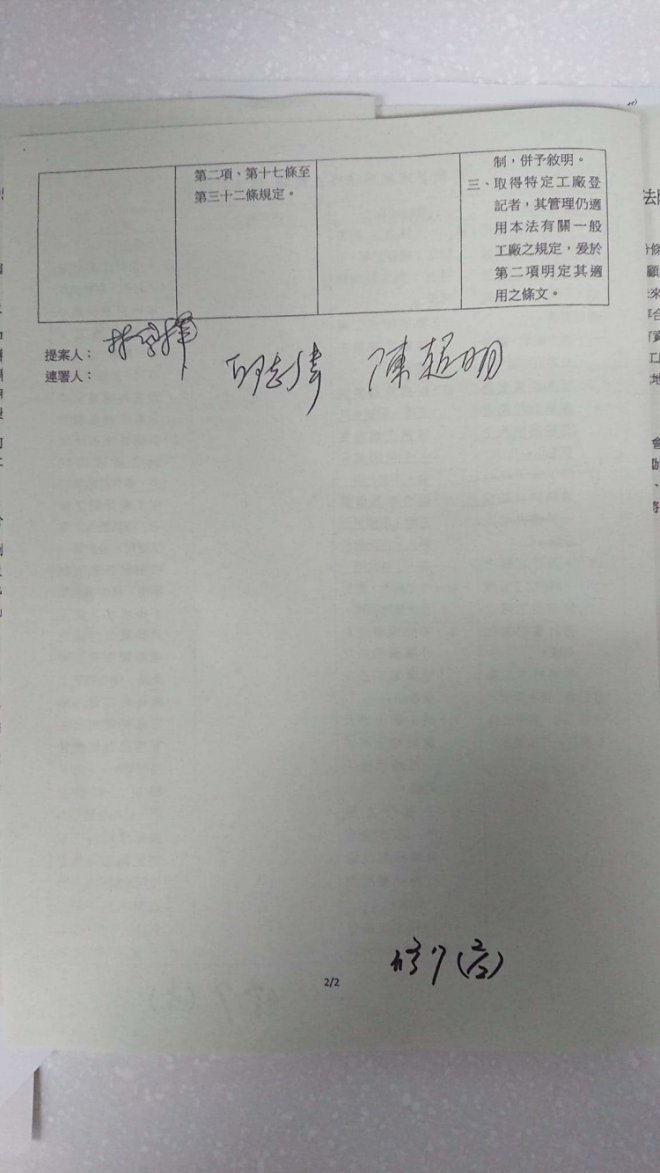 第二項、第十七條至
第三十二條規定。
制，併予敘明。
三、取得特定工廠登
記者，其管理仍適
用本法有關一般
工廠之規定，爰於
第二項明定其適
用之條文。
提案人：
連署人：
邱志偉 陳超明
2/2
修7(2/2)